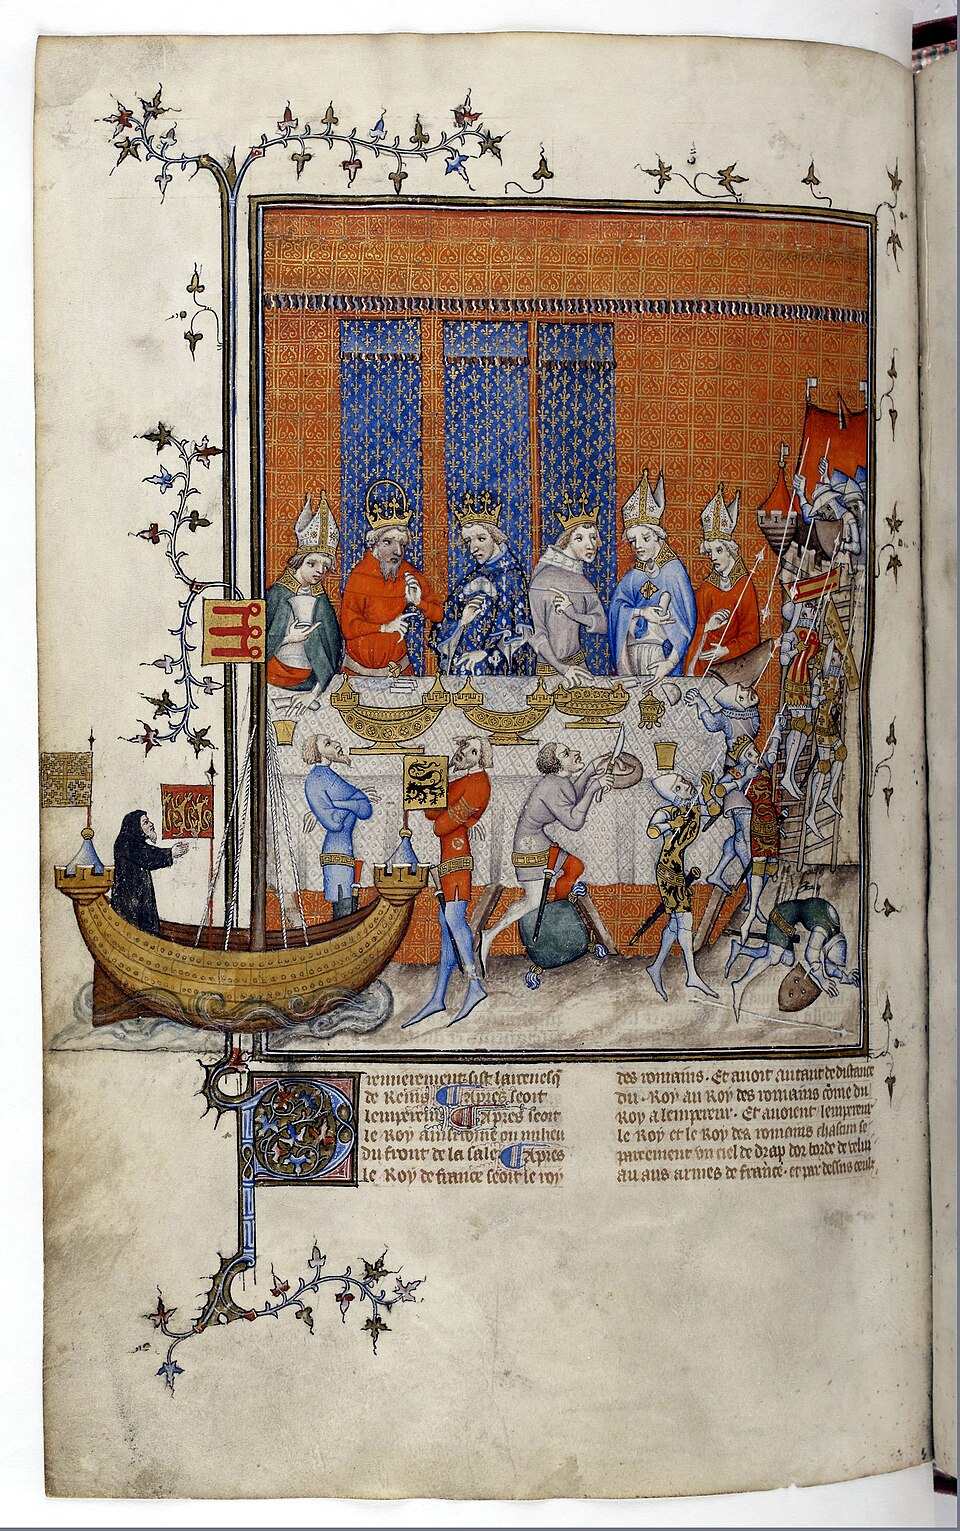 Premierement sist larcevesq
de Reins Et apres seoit
lempereur Et apres seoit
le Roy ainsi come ou milieu
du front de la sale Et apres
le Roy de france seoit le roy
des romains. Et avoit autant de distance
du. Roy au Roy des romains come du
Roy a lempereur. Et avoient lempereur
le Roy et le Roy des romains chascun se
parement un ciel de drap dor borde de veluiau
au aus armes de france. et par dessus ceulx